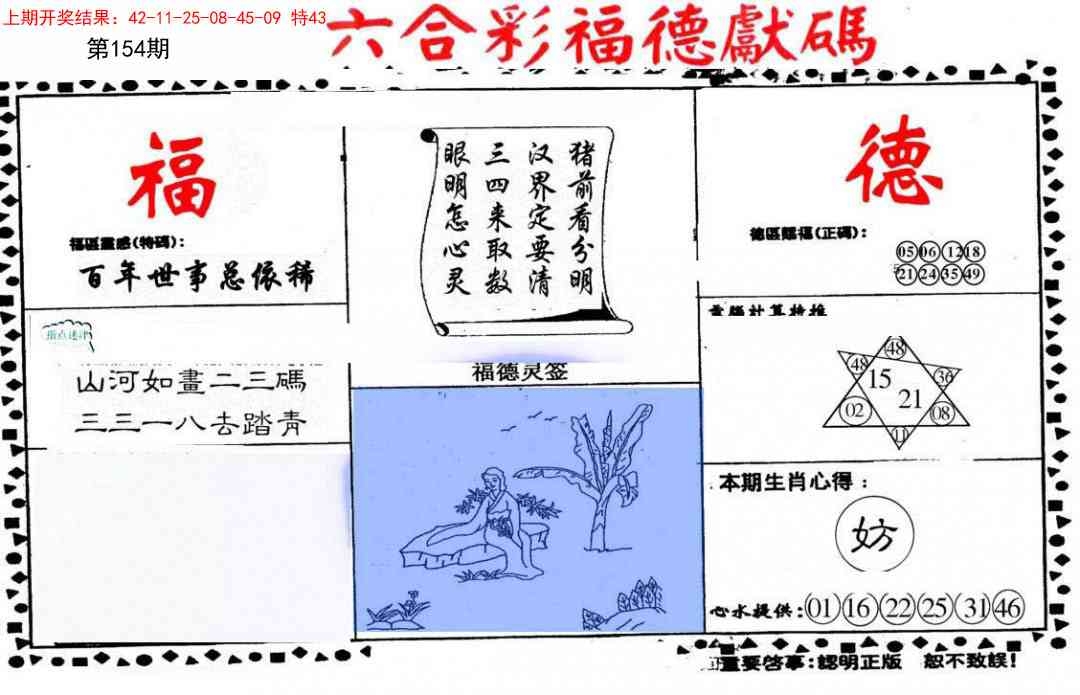 上期开奖结果：42-11-25-08-45-09 特43
第154期
六合彩福德獻碼
福
福區靈感(特碼)：
百年世事总依稀
指点迷津
山河如畫二三碼
三三一八去踏青
猪前看分明
汉界定要清
三四来取数
眼明怎心灵
福德灵签
德
德區賜福(正碼)：
05 06 12 18
21 24 35 49
48
48 36
15
21
02 08
11
本期生肖心得：
妨
心水提供：01 16 22 25 31 46
重要啓事：認明正版 恕不致誤！